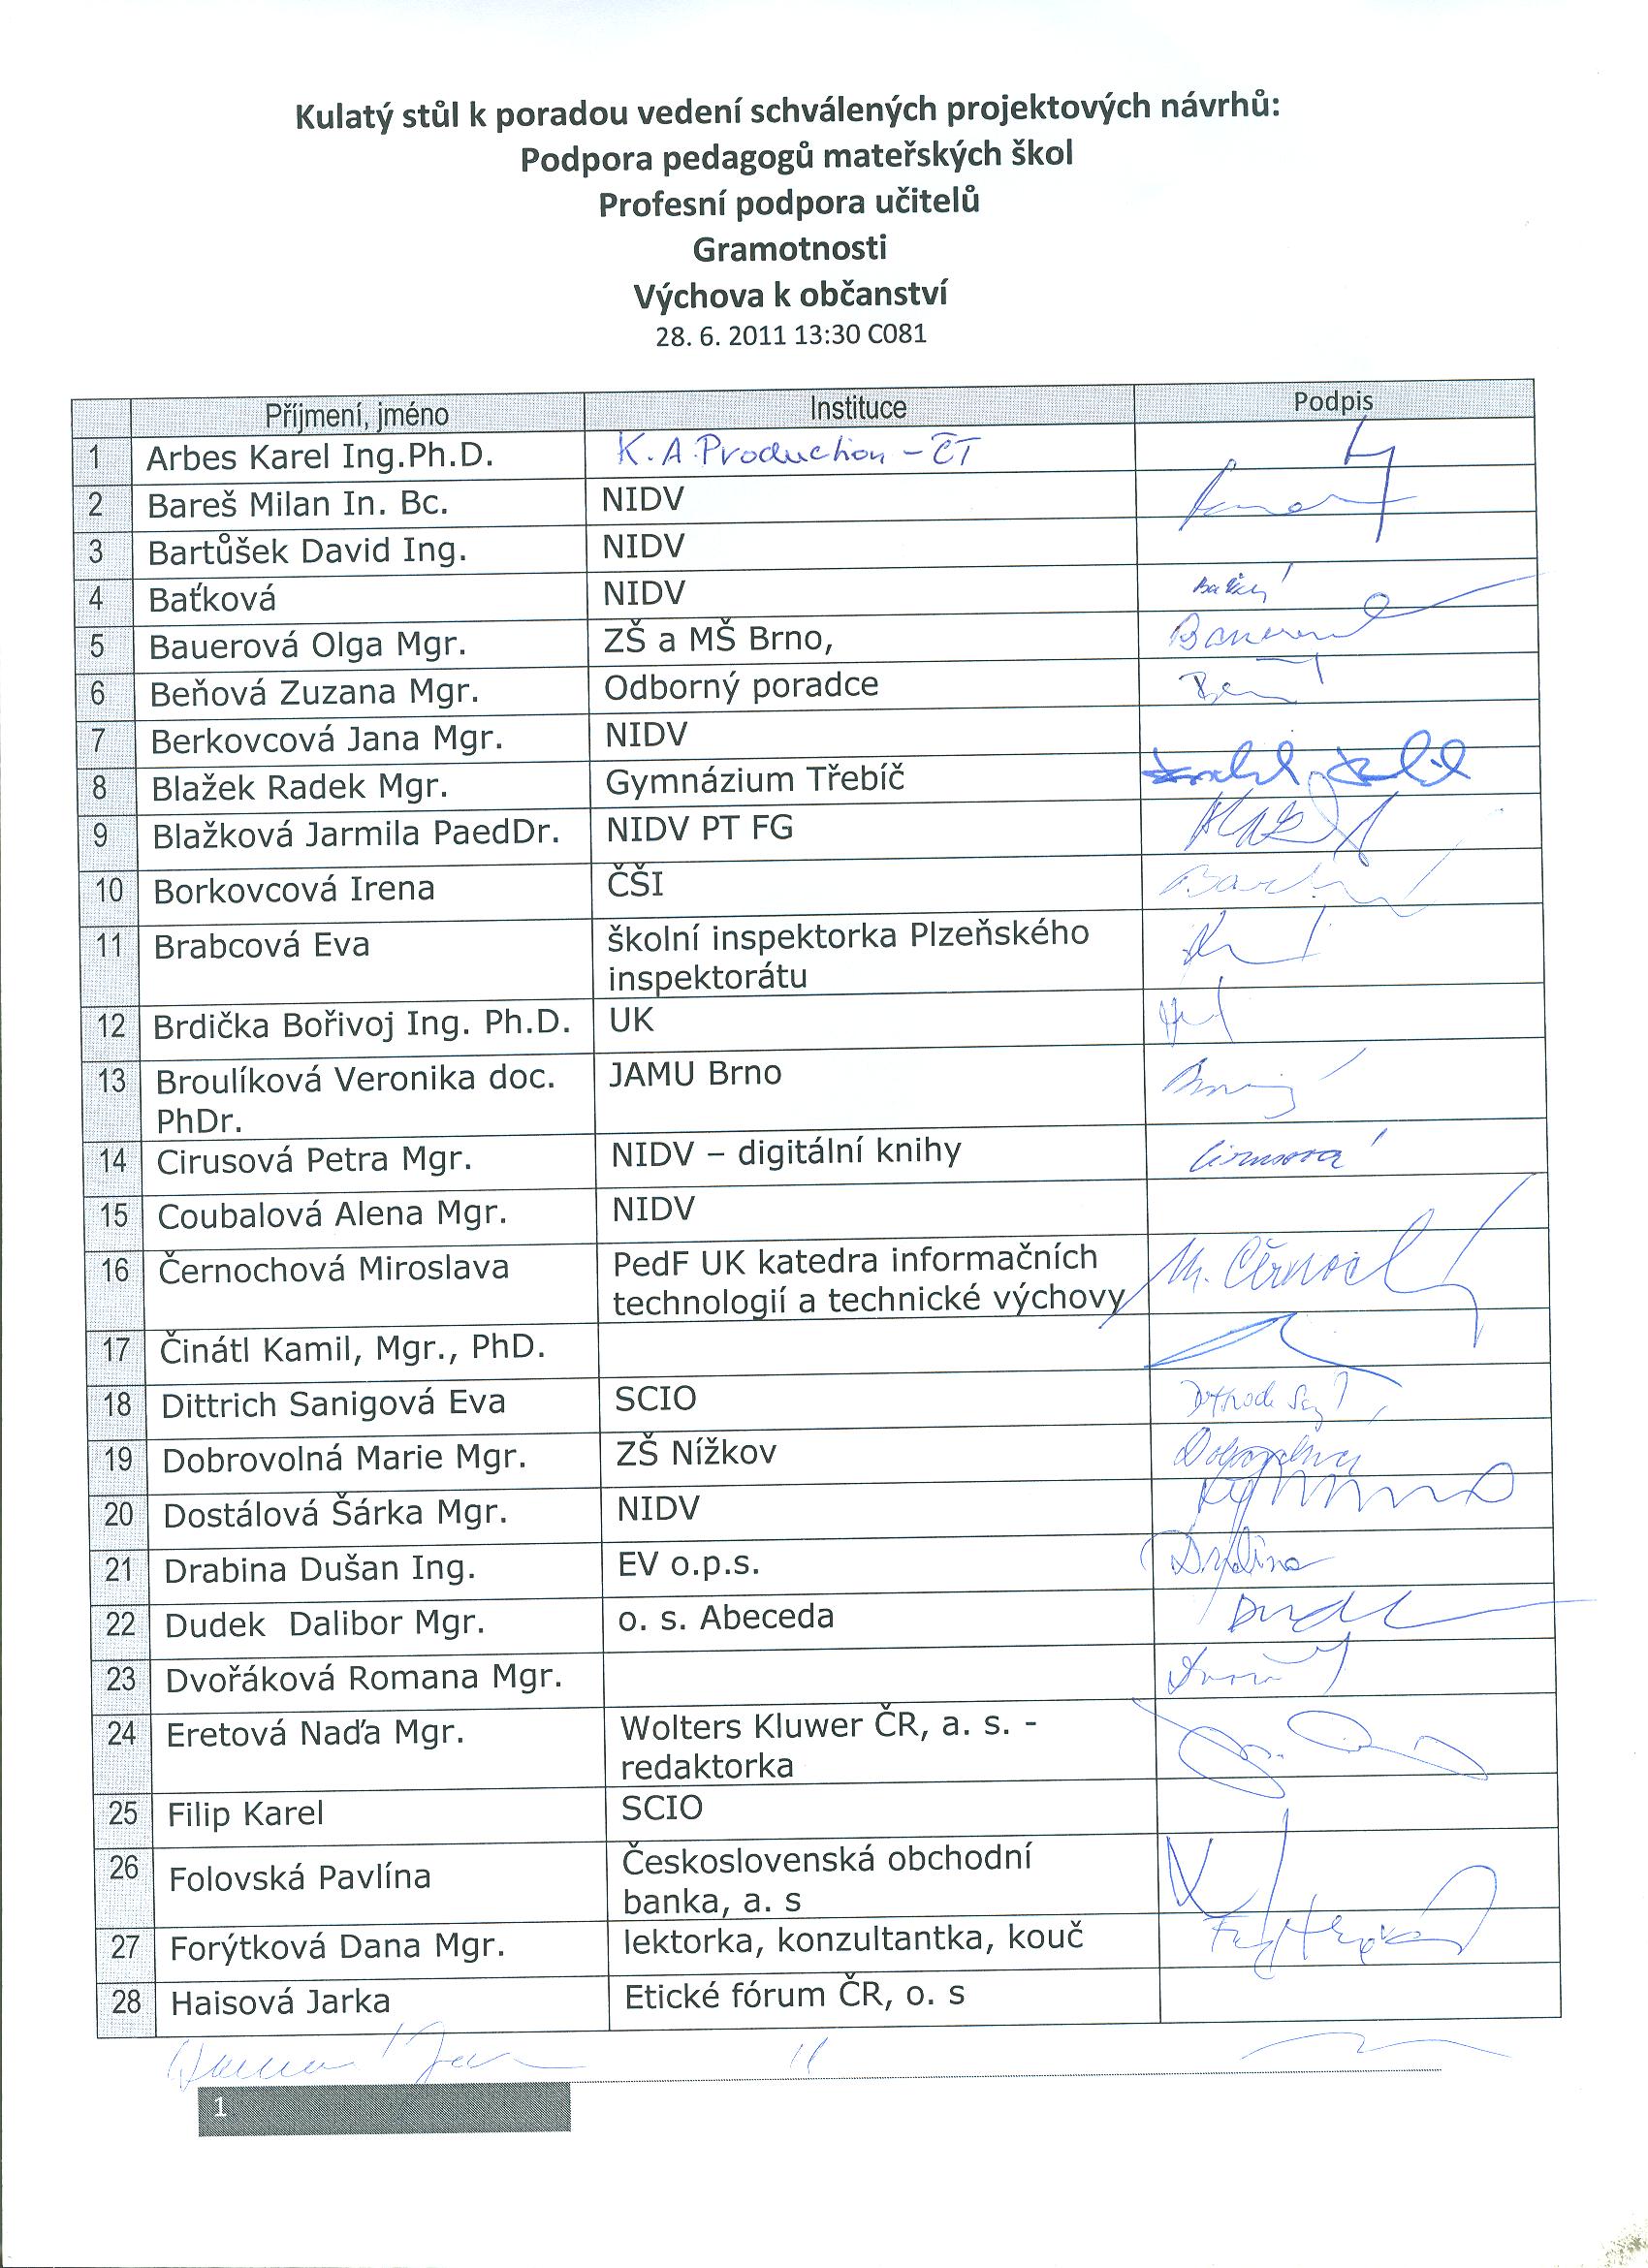 Kulatý stůl k poradou vedení schválených projektových návrhů:
Podpora pedagogů mateřských škol
Profesní podpora učitelů
Gramotnosti
Výchova k občanství
28. 6. 2011 13:30 C081
Příjmení, jméno Instituce Podpis
1 Arbes Karel Ing.Ph.D. K.A.Production – ČT
2 Bareš Milan In. Bc. NIDV
3 Bartůšek David Ing. NIDV
4 Baťková NIDV
5 Bauerová Olga Mgr. ZŠ a MŠ Brno, Bauerová
6 Beňová Zuzana Mgr. Odborný poradce
7 Berkovcová Jana Mgr. NIDV
8 Blažek Radek Mgr. Gymnázium Třebíč
9 Blažková Jarmila PaedDr. NIDV PT FG
10 Borkovcová Irena ČŠI
11 Brabcová Eva školní inspektorka Plzeňského
inspektorátu
12 Brdička Bořivoj Ing. Ph.D. UK
13 Broulíková Veronika doc. JAMU Brno
PhDr.
14 Cirusová Petra Mgr. NIDV – digitální knihy Cirusová
15 Coubalová Alena Mgr. NIDV
16 Černochová Miroslava PedF UK katedra informačních
technologií a technické výchovy M. Černoch
17 Činátl Kamil, Mgr., PhD.
18 Dittrich Sanigová Eva SCIO
19 Dobrovolná Marie Mgr. ZŠ Nížkov Dobrovolná
20 Dostálová Šárka Mgr. NIDV
21 Drabina Dušan Ing. EV o.p.s. Drabina
22 Dudek Dalibor Mgr. o. s. Abeceda Dudek
23 Dvořáková Romana Mgr.
24 Eretová Naďa Mgr. Wolters Kluwer ČR, a. s. -
redaktorka
25 Filip Karel SCIO
26 Folovská Pavlína Československá obchodní
banka, a. s
27 Forýtková Dana Mgr. lektorka, konzultantka, kouč
28 Haisová Jarka Etické fórum ČR, o. s
1